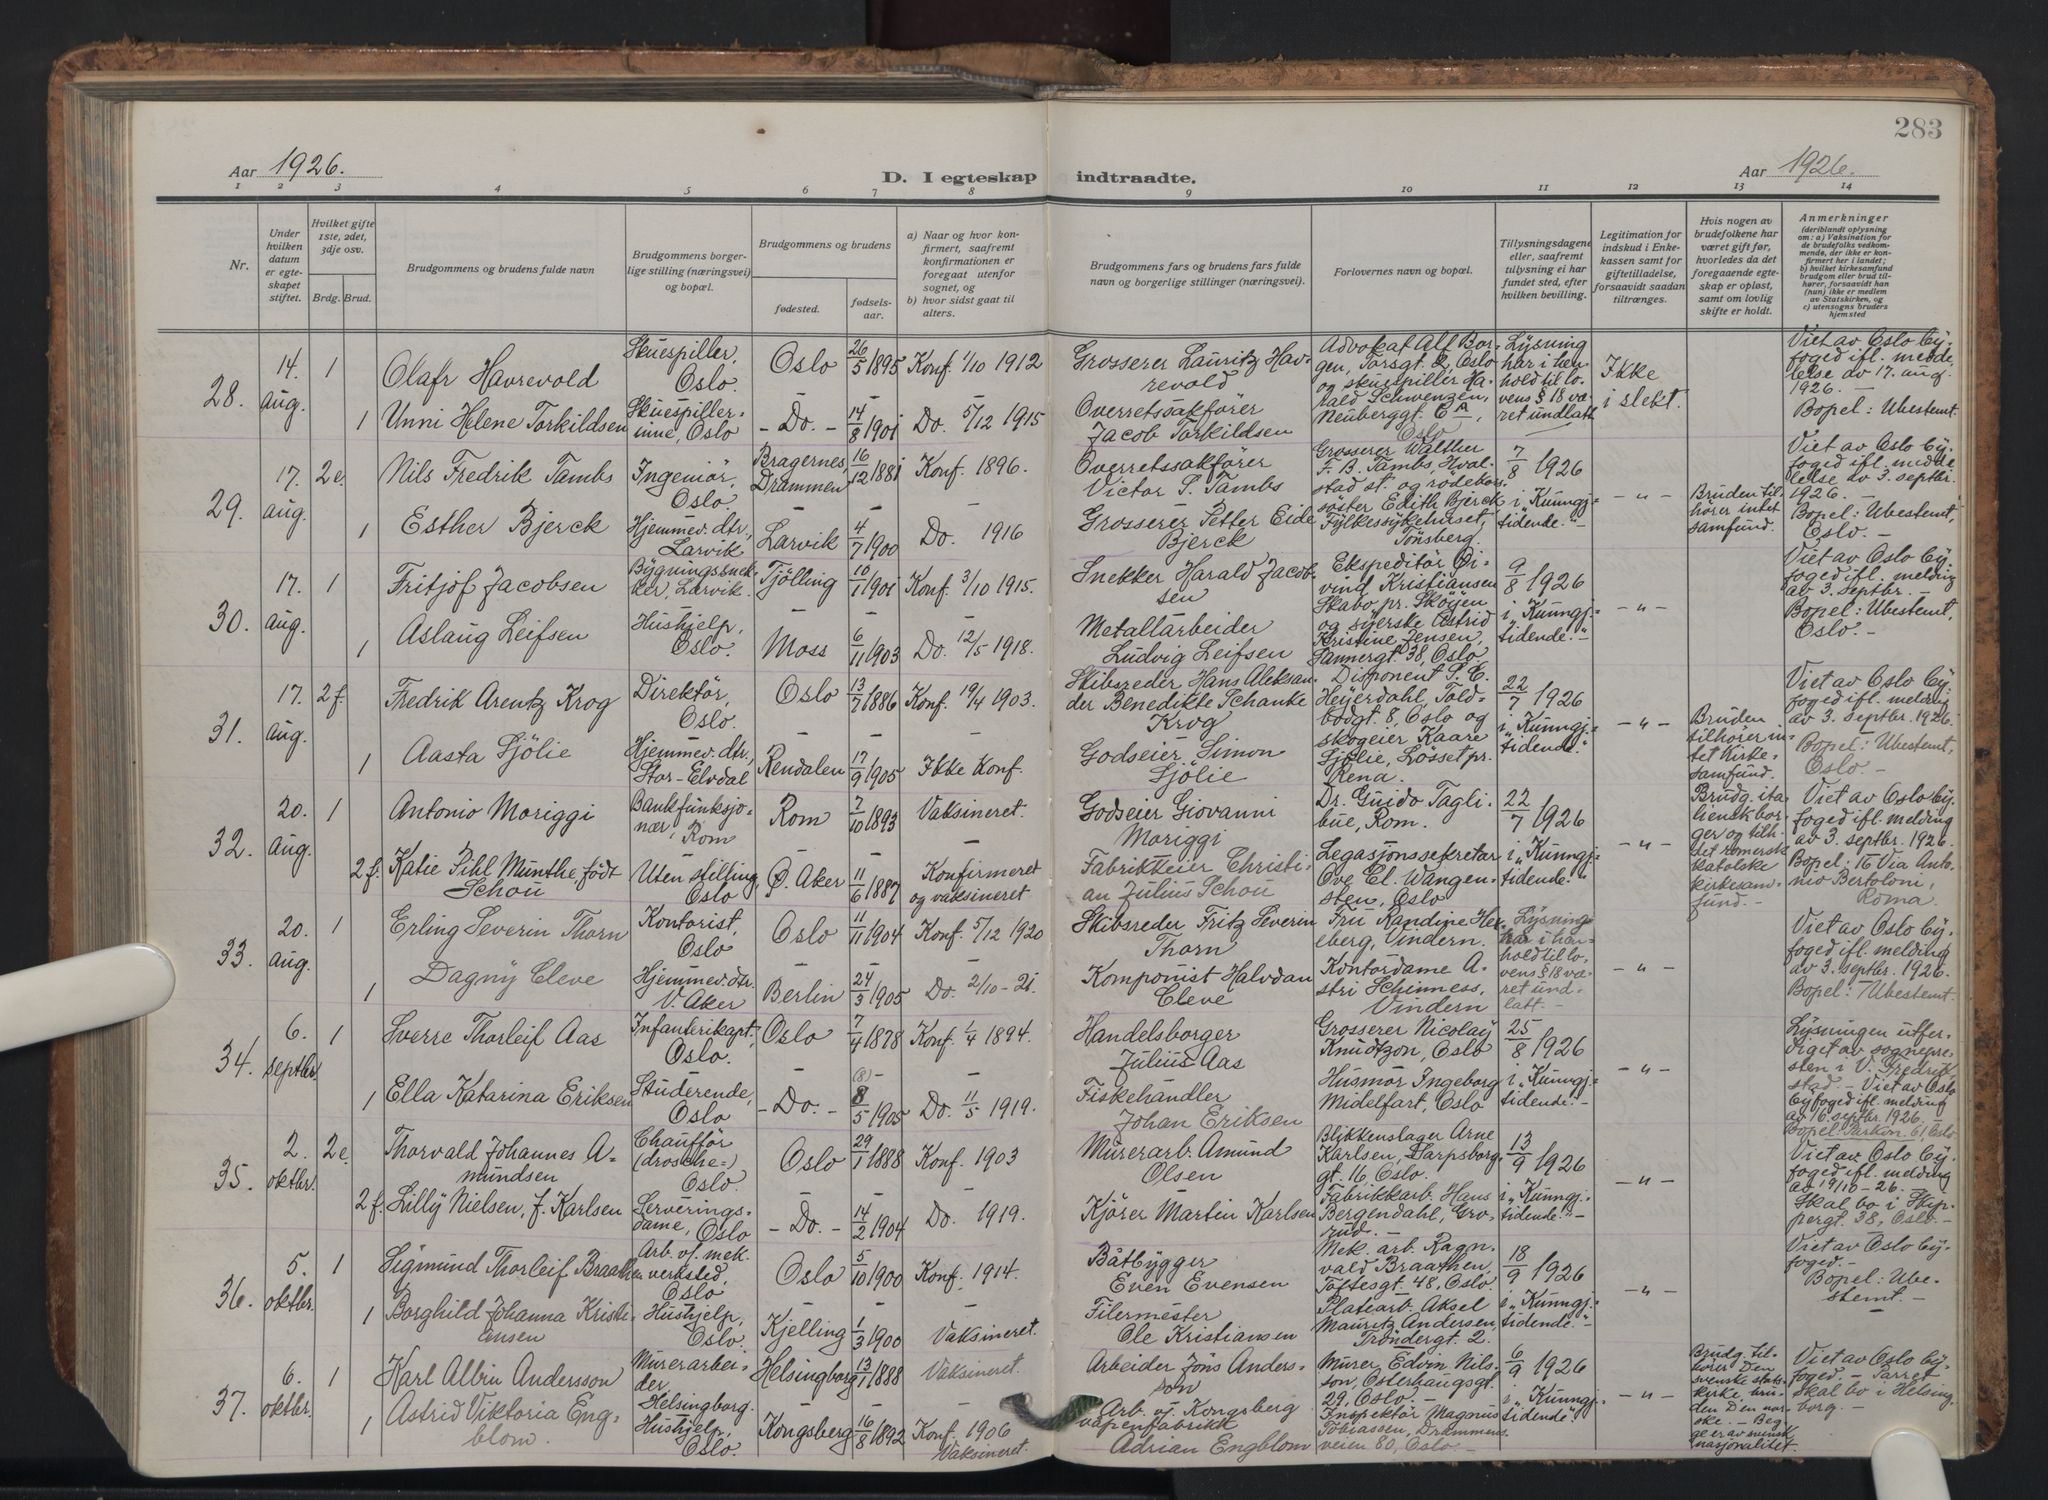 283
Aar 1926.
D. I egteskap indtraadte.
Aar 1926.
1 2 3 4 5 6 7 8 9 10 11 12 13 14
Nr.
Under hvilken datum er egteskapet stiftet.
Hvilket gifte 1ste, 2det, 3dje osv.
Brdg. Brud.
Brudgommens og brudens fulde navn
Brudgommens borgerlige stilling (næringsvei) og bopæl.
Brudgommens og brudens
fødested.
fødselsaar.
a) Naar og hvor konfirmert, saafremt konfirmationen er foregaat utenfor sognet, og
b) hvor sidst gaat til alters.
Brudgommens fars og brudens fars fulde navn og borgerlige stillinger (næringsvei).
Forlovernes navn og bopæl.
Tillysningsdagene eller, saafremt tillysning ei har fundet sted, efter hvilken bevilling.
Legitimation for indskud i Enkekassen samt for giftetilladelse, forsaavidt saadan tiltrænges.
Hvis nogen av brudefolkene har været gift før, hvorledes da det foregaaende egteskap er opløst, samt om lovlig skifte er holdt.
Anmerkninger
(deriblandt oplysning om: a) Vaksination for de brudefolks vedkommende, der ikke er konfirmert her i landet;
b) hvilket kirkesamfund brudgom eller brud tilhører, forsaavidt han (hun) ikke er medlem av Statskirken, og
c) utensogns bruders hjemsted
28. 14. aug. 1 Olafr Havrevold Skuespiller. Oslo. Oslo 26/5 1895 Konf. 1/10 1912 Grosserer Lauritz Havrevold
Advokat Alf Borgen, Torsgt. 2, Oslo og skuespiller Harald Schwenzen, Neuberggt. 6 A, Oslo
Lysning har i henhold til lovens § 18 været undlatt
Ikke i slekt.
Viet av Oslo byfoged ifl. meddelelse av 17. aug. 1926. — Bopel: Ubestemt.
1 Unni Helene Torkildsen Skuespillerinne, Oslo - Do. - 14/8 1901 Do. 5/12 1915 Overretssakfører Jacob Torkildsen
29. 17. aug. 2e. Nils Fredrik Tambs Ingeniør, Oslo. Bragernes, Drammen 16/12 1881 Konf. 1896. Overretssakfører Victor S. Tambs
Grosserer Walther F. B. Tambs, Hvalstad st. og rødekorssøster Edith Bjerck Fylkessykehuset, Tønsberg.
7/8 1926 i "Kunngj.tidende." -
- " -
Bruden tilhører intet samfund.
Viet av Oslo byfoged ifl. meddelelse av 3. septbr. 1926. — Bopel: Ubestemt, Oslo. —
1 Esther Bjerck Hjemmev. dtr., Larvik Larvik 4/7 1900 Do. 1916 Grosserer Petter Eide Bjerck
30. 17. aug. 1 Fritjof Jacobsen Bygningssnekker, Larvik. Tjölling 16/1 1901 Konf. 3/10 1915. Snekker Harald Jacobsen
Ekspeditör Öivind Kristiansen Skabo pr. Sköyen og syerske Astrid Kristine Jensen, Sannergt. 38, Oslo
9/8 1926 i "Kunngj.tidende." -
- " -
Viet av Oslo byfoged ifl. melding av 3. septbr. — Bopel: Ubestemt, Oslo. —
1 Aslaug Leifsen Hushjelp, Oslo. Moss 6/11 1903 Do. 12/5 1918. Metallarbeider Ludvig Leifsen
31. 17. aug. 2f. Fredrik Arentz Krog Direktör, Oslo. Oslo 13/7 1886 Konf. 19/4 1903. Skibsreder Hans Aleksander Benedikte Schanke Krog
Disponent S. E. Heyerdahl, Toldbodgt. 8, Oslo og skogeier Kaare Sjölie, Lösset pr. Rena.
22/7 1926 i "Kunngj.tidende."
- " -
Bruden tilhører intet kirkesamfund.
Viet av Oslo byfoged ifl. melding av 3. septbr. 1926. Bopel: Ubestemt, Oslo. —
1 Aasta Sjölie Hjemmev. dtr., Stor-Elvdal Rendalen 17/9 1905 Ikke Konf. Godseier Simon Sjölie
32. 20. aug. 1 Antonio Moriggi Bankfunksjonær, Rom Rom 7/10 1893 Vaksineret. Godseier Giovanni Moriggi
Dr. Guido Taglibue, Rom. Legasjonssekretær Ove Cl. Wangensten, Oslo
22/7 1926 i "Kunngj.tidende."
- " -
Brudg. italiensk borger og tilh. det romersk katolske kirkesamfund. -
Viet av Oslo byfoged ifl. melding av 3. septbr. 1926. Bopel: 16 Via Antonio Bertoloni, Roma.
2f. Katie Sihl Munthe, født Schou Uten stilling Oslo Ö. Aker 11/6 1887 Konfirmeret og vaksineret Fabrikkeier Christian Julius Schou
33. 20. aug. 1 Erling Severin Thorn Kontorist, Oslo Oslo 11/11 1904 Konf. 5/12 1920 Skibsreder Fritz Severin Thorn
Fru Randine Heieberg, Vindern. Kontordame Astri Schinness, Vindern
Lysning har i henhold til lovens § 18 været undlatt. -
- " -
Viet av Oslo byfoged ifl. melding av 3. septbr. 1926. Bopel: Ubestemt.
1 Dagny Cleve Hjemmev. dtr. V. Aker Berlin 24/3 1905 Do. 2/10 - 21. Komponist Halvdan Cleve
34. 6. septbr. 1 Sverre Thorleif Aas Infanterikapt., Oslo. Oslo 7/4 1878 Konf. 1/4 1894. Handelsborger Julius Aas
Grosserer Nicolay Knudtzon, Oslo Husmor Ingeborg Midelfart, Oslo
25/8 1926 i "Kunngj.tidende." -
- " -
Lysningen utferdiget av sognepresten i V. Fredrikstad. - Viet av Oslo byfoged ifl. melding av 16. septbr. 1926. - Bopel: Parkvn. 61, Oslo
1 Ella Katarina Eriksen Studerende, Oslo - Do. - (8) 8/5 1905 Do. 11/5 1919. Fiskehandler Johan Eriksen
35. 2. oktbr. 2e. Thorvald Johannes Amundsen Chaufför (drosche=) Oslo. Oslo 29/1 1888 Konf. 1903 Murerarb. Amund Olsen
Blikkenslager Arne Karlsen, Sarpsborggt. 16, Oslo. Fabrikkarb. Hans Bergendahl, Grorud. -
13/9 1926 i "Kunngj.tidende." -
- " -
Viet av Oslo byfoged ifl. melding av 19/10 - 26. Skal bo i Skippergt. 38, Oslo. -
2f. Lilly Nielsen, f. Karlsen Serveringsdame, Oslo - Do. - 14/2 1904 Do. 1919. Kjörer Martin Karlsen
36. 5. oktbr. 1 Sigmund Thorleif Braathen Arb. v. mek. verksted, Oslo Oslo 5/10 1900 Konf. 1914. Båtbygger Even Evensen
Mek. arb. Ragnvald Braathen, Toftesgt 48, Oslo. Platearb. Aksel Mauritz Andersen, Tröndergt. 2.
18/9 1926 i "Kunngj.tidende." -
- " -
Viet av Oslo byfoged. - Bopel: Ubestemt. -
1 Borghild Johanna Kristiansen Hushjelp, Oslo. Kjelling 1/3 1900 Vaksineret. Filermester Ole Kristiansen
37. 6. oktbr. 1 Karl Albin Andersson Murerarbeider, Helsingborg. Helsingborg 13/1 1888 Vaksineret. Arbeider Jöns Andersson
Murer Edvin Nilsson, Osterhausgt. 29, Oslo. - Inspektör Magnus Tobiassen, Drammensveien 80, Oslo -
6/9 1926 i "Kunngj.tidende."
- " -
Brudg. tilhører Den svenske statskirke, bruden Den norske. - Begge er av svensk nasjonalitet.
Viet av Oslo byfoged. - Parret skal bo i Helsingborg. -
1 Astrid Viktoria Engblom. Hushjelp, Oslo. Kongsberg 16/8 1892 Konf. 1906 Vaksineret. Arb. v. Kongsberg våpenfabrikk Adrian Engblom